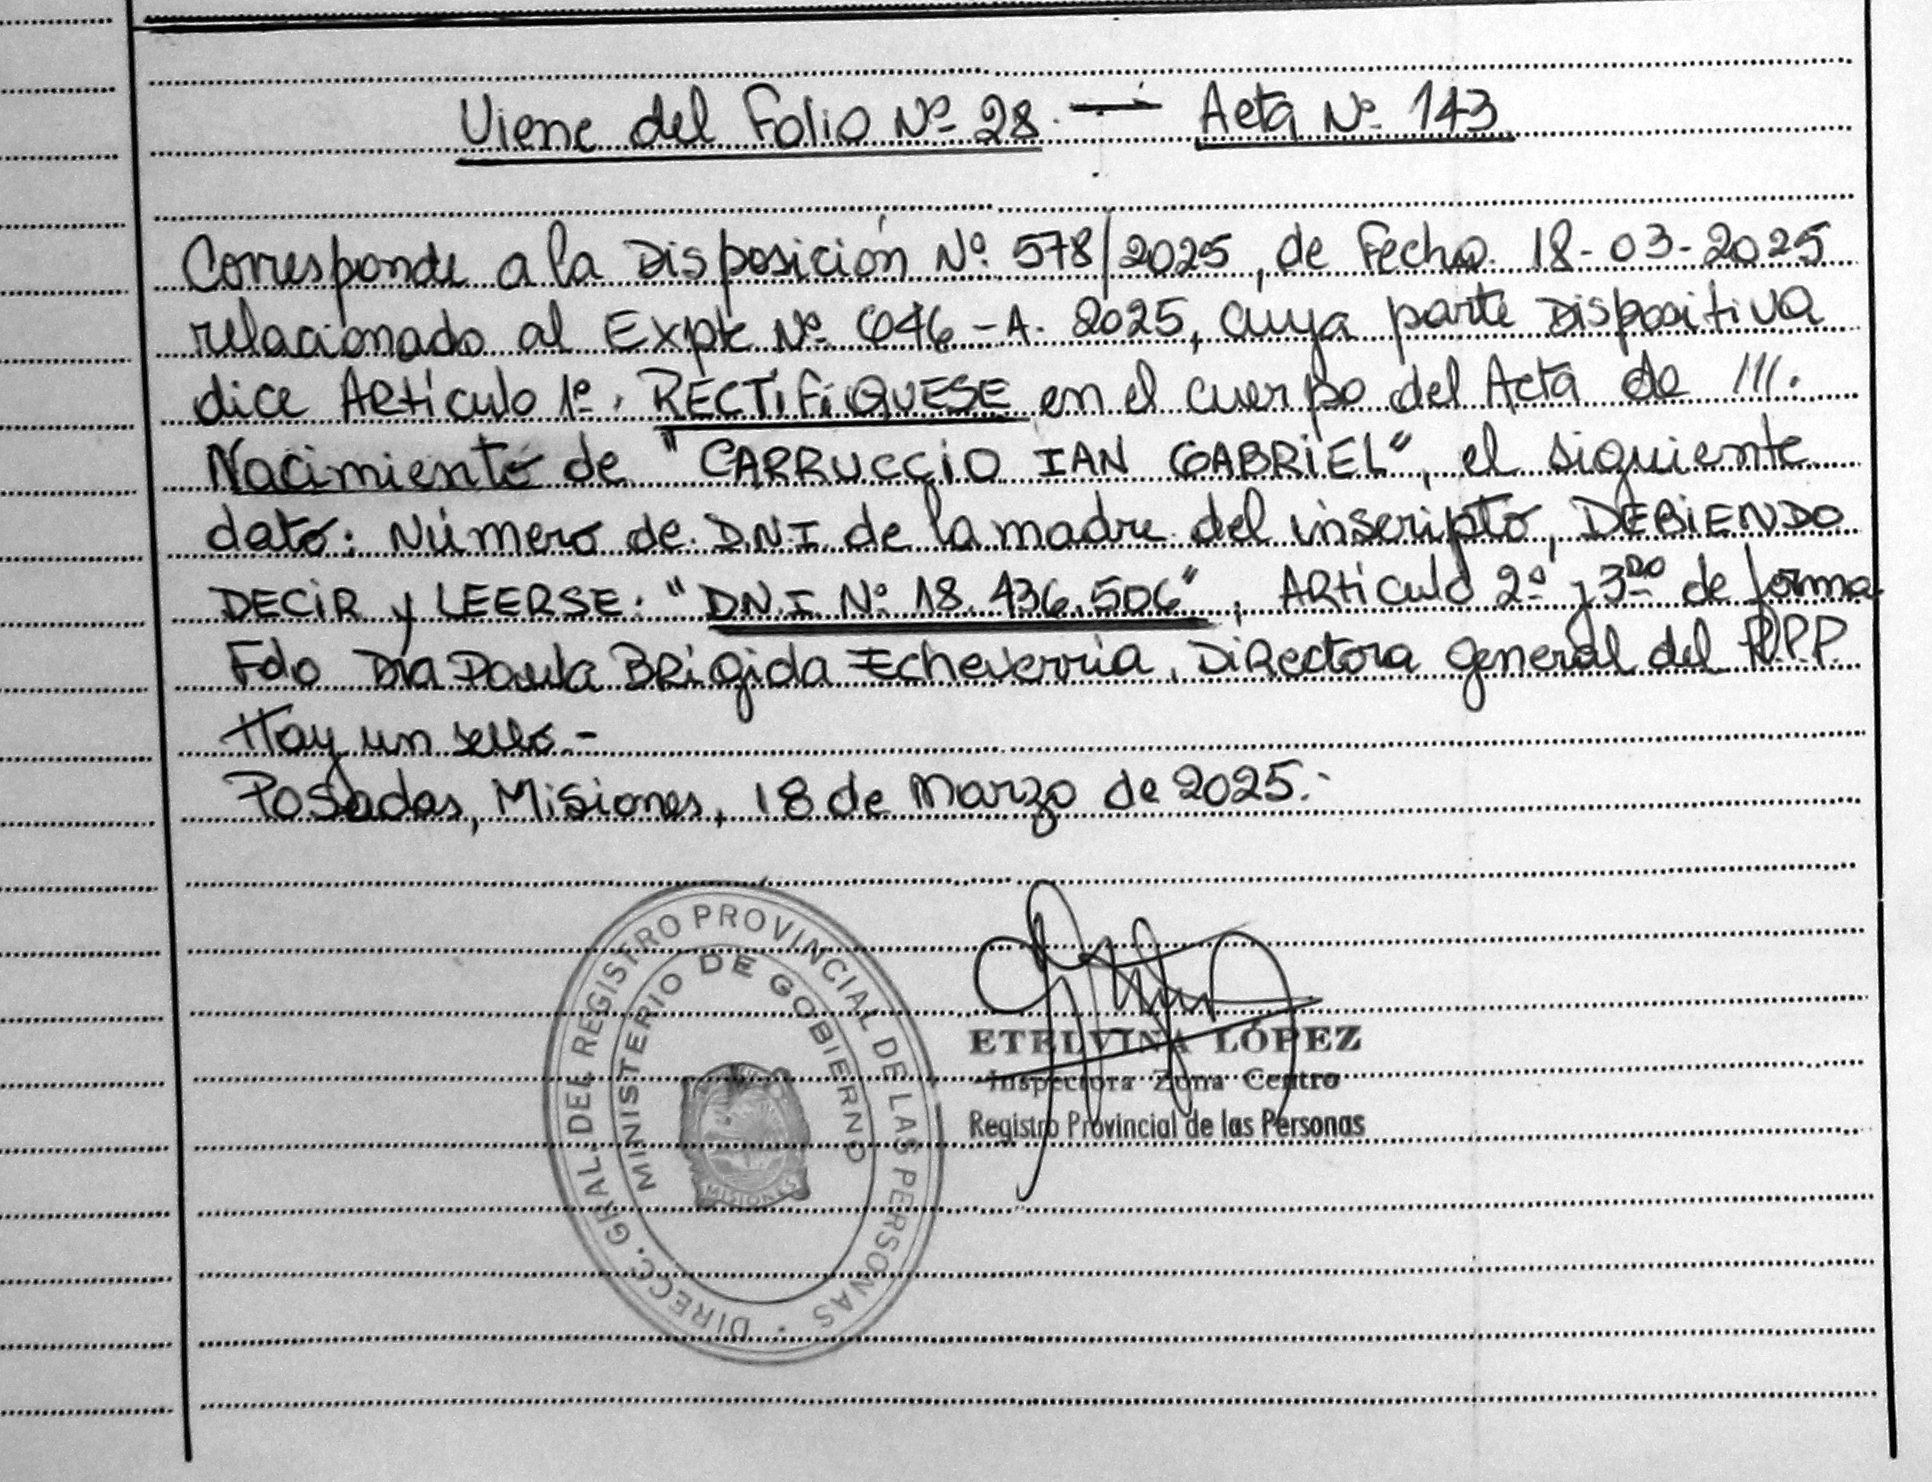 Viene del Folio Nº 28. — Acta Nº 143
Corresponde a la Disposición Nº 578/2025, de Fecha 18-03-2025
relacionado al Expte Nº 646-A-2025, cuya parte Dispositiva
dice Artículo 1º. RECTIFIQUESE en el cuerpo del Acta de ///.
Nacimiento de "CARRUCCIO IAN GABRIEL", el siguiente
dato: Número de D.N.I de la madre del inscripto, DEBIENDO
DECIR y LEERSE: "D.N.I Nº 18.436.506", ARtículo 2º y 3º de forma
Fdo Dra Paula BRigida Echeverria, DiRectora general del R.P.P.
Hay un sello.-
Posadas, Misiones, 18 de Marzo de 2025.-
DIRECC. GRAL. DEL REGISTRO PROVINCIAL DE LAS PERSONAS
MINISTERIO DE GOBIERNO
MISIONES
ETELVINA LÓPEZ
Inspectora Zona Centro
Registro Provincial de las Personas